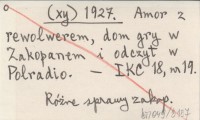 (xy) 1927. Amor z
rewolwerem, dom gry w
Zakopanem i odczyt w
Polradio. — IKC 18, m19.
Różne sprawy zakop.